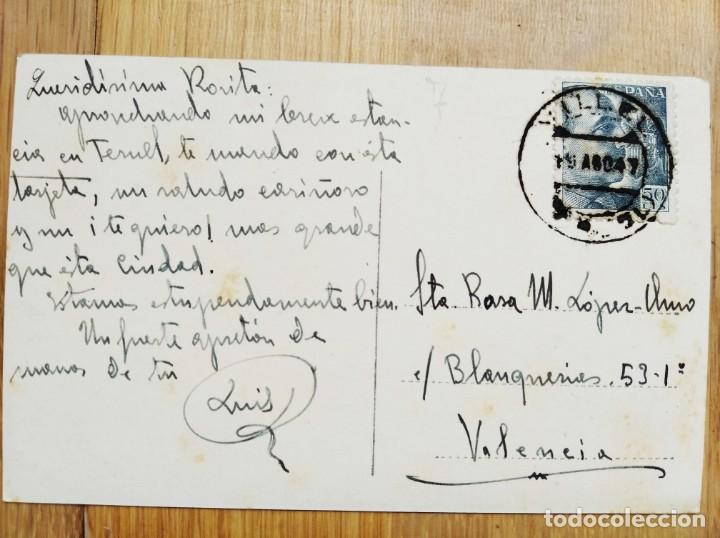 Queridísima Rosita:
aprovechando mi breve estan-
cia en Teruel, te mando con ésta
tarjeta, un saludo cariñoso
y un ¡te quiero! mas grande
que ésta Ciudad.
Estamos estupendamente bien.
Un fuerte apretón de
manos de tu
Luis
ESPAÑA
VILLEL
AGO 47
50
Sta Rosa M. López-Olmo
c/ Blanquerias. 53-1º
Valencia
todocoleccion.net